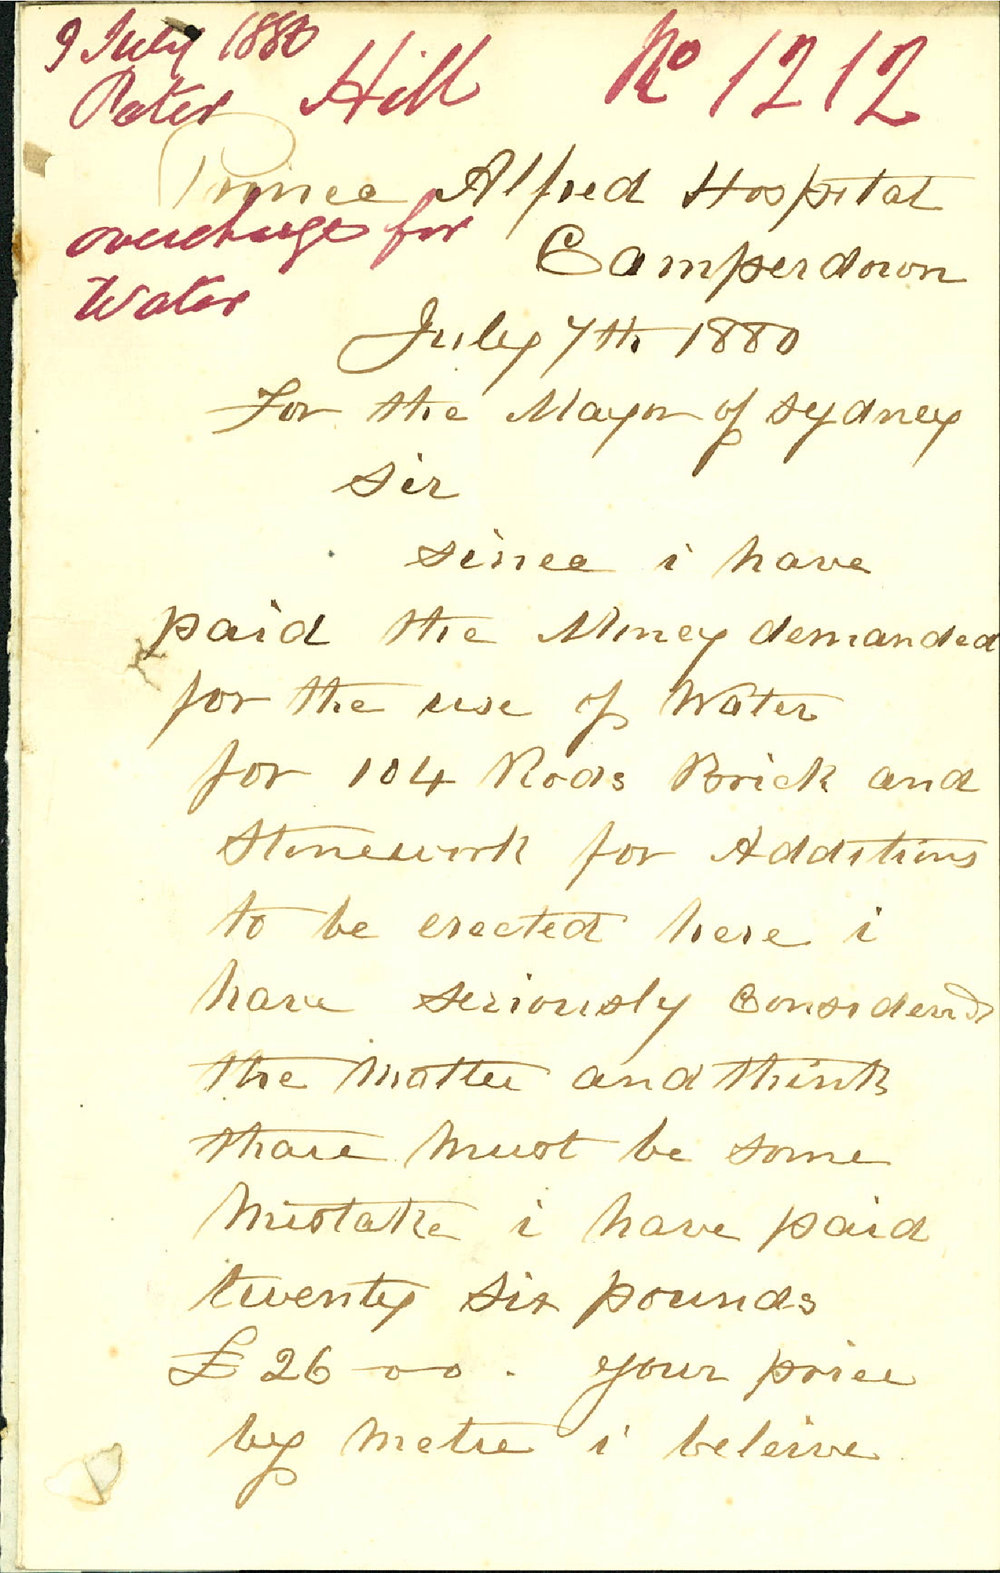 9 July 1880
Peter Hill No 1212
Prince Alfred Hospital
overcharge for
Camperdown
Water
July 7th 1880
For the Mayor of Sydney
Sir
since i have
paid the Money demanded
for the use of Water
for 104 Rods Brick and
Stonework for Additions
to be erected here i
have seriously Considerd
the matter and think
thare must be some
mistake i have paid
twenty six pounds
£26-0-0. your price
by metre i beleive